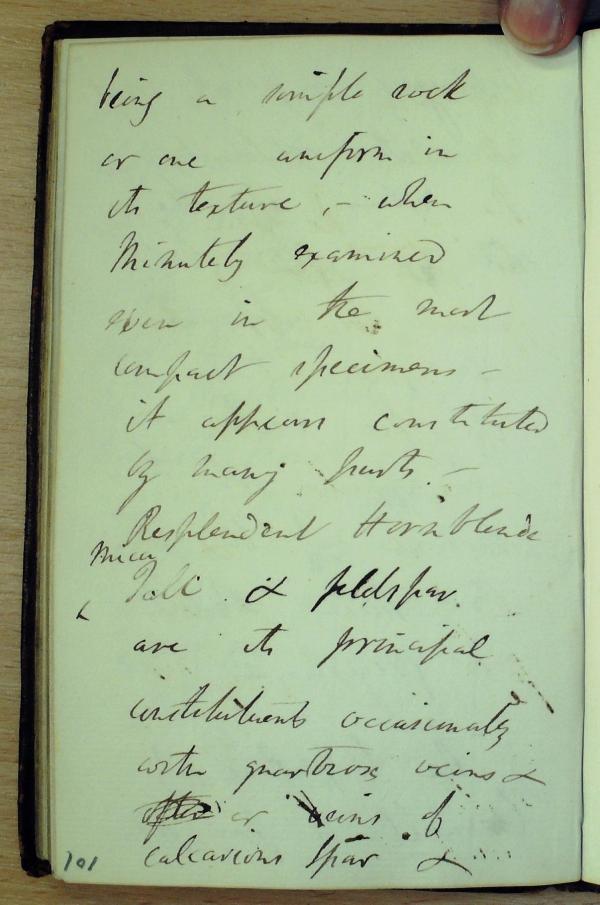 being a simple rock
or one uniform in
its texture, - when
Minutely examined
even in the most
compact specimens -
it appears constituted
by many parts. -
Resplendent Hornblende
Mica
Talc & feldspar.
are its principal
constituents occasionally
with quartzose veins &
or veins of
calcareous spar &
101